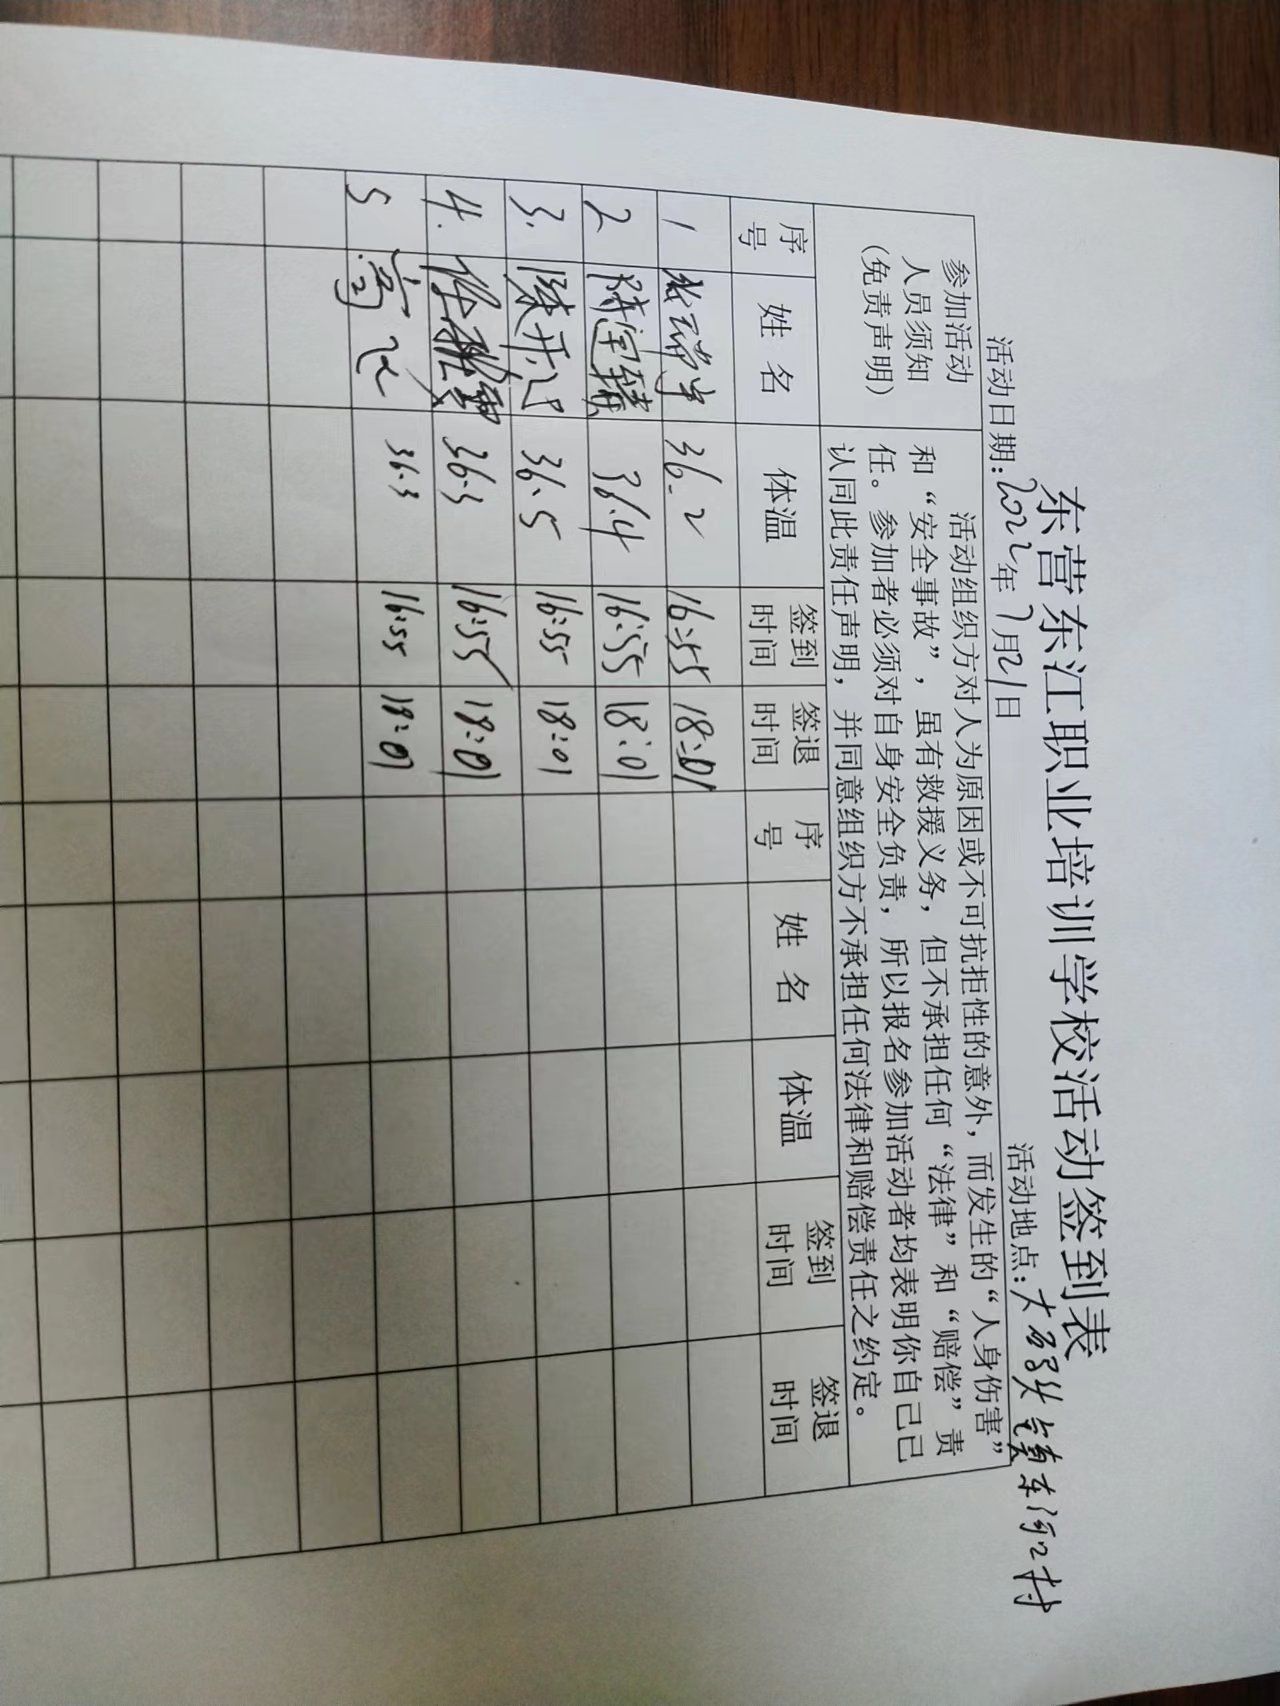 东营东江职业培训学校活动签到表
活动日期：2022年7月21日 活动地点：大码头镇东河口村
参加活动人员须知（免责声明）
活动组织方对人为原因或不可抗拒性的意外，而发生的“人身伤害”
和“安全事故”，虽有救援义务，但不承担任何“法律”和“赔偿”责
任。参加者必须对自身安全负责，所以报名参加活动者均表明你自己已
认同此责任声明，并同意组织方不承担任何法律和赔偿责任之约定。
序号 姓名 体温 签到时间 签退时间 序号 姓名 体温 签到时间 签退时间
1 36.2 16:55 18:01
2 36.4 16:55 18:01
3. 36.5 16:55 18:01
4. 36.3 16:55 18:01
5 36.3 16:55 18:01